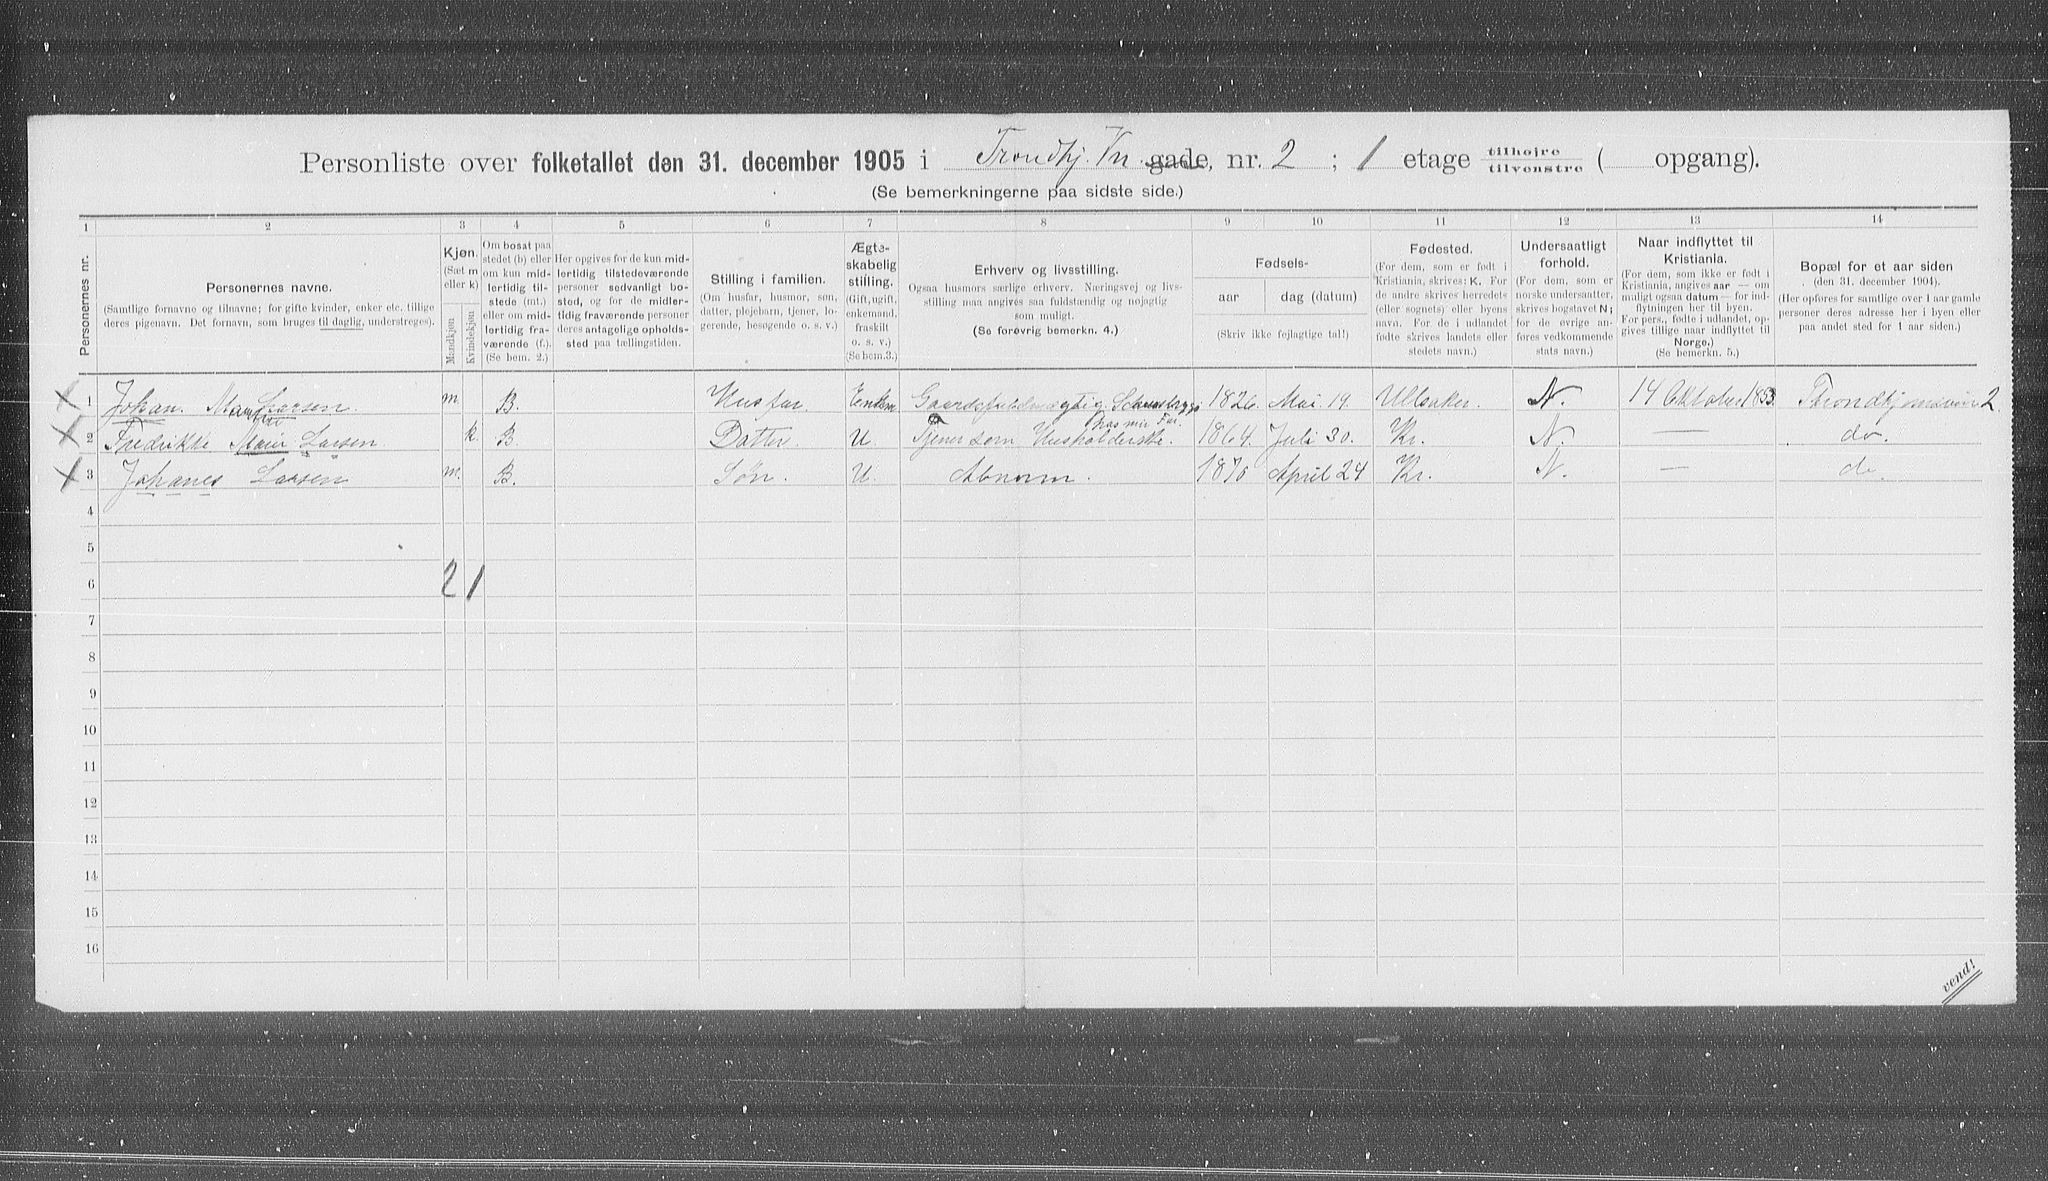 Personliste over folketallet den 31. december 1905 i Trondhj. Vn. gade, nr. 2 ; 1 etage tilhøjre tilvenstre ( opgang).
(Se bemerkningerne paa sidste side.)
1 2 3 4 5 6 7 8 9 10 11 12 13 14
Personernes nr.
Personernes navne.
(Samtlige fornavne og tilnavne; for gifte kvinder, enker etc. tillige
deres pigenavn. Det fornavn, som bruges til daglig, understreges).
Kjøn.
(Sæt m
eller k)
Mandkjøn
Kvindekjøn
Om bosat paa
stedet (b) eller
om kun mid-
lertidig til-
stede (mt.)
eller om mid-
lertidig fra-
værende (f.).
(Se bem. 2.)
Her opgives for de kun mid-
lertidig tilstedeværende
personer sedvanligt bo-
sted, og for de midler-
tidig fraværende personer
deres antagelige opholds-
sted paa tællingstiden.
Stilling i familien.
(Om husfar, husmor, søn,
datter, plejebarn, tjener, lo-
gerende, besøgende o. s. v.)
Ægte-
skabelig
stilling.
(Gift, ugift,
enkemand,
fraskilt
o. s. v.)
(Se bem.3.)
Erhverv og livsstilling.
Ogsaa husmors særlige erhverv. Næringsvej og livs-
stilling maa angives saa fuldstændig og nøjagtig
som muligt.
(Se forøvrig bemerkn. 4.)
Fødsels-
aar dag (datum)
(Skriv ikke fejlagtige tal!)
Fødested.
(For dem, som er født i
Kristiania, skrives: K. For
de andre skrives herredets
(eller sognets) eller byens
navn. For de i udlandet
fødte skrives landets eller
stedets navn.)
Undersaatligt
forhold.
(For dem, som er
norske undersaatter,
skrives bogstavet N;
for de øvrige an-
føres vedkommende
stats navn.)
Naar indflyttet til
Kristiania.
(For dem, som ikke er født i
Kristiania, angives aar — om
muligt ogsaa datum — for ind-
flytningen her til byen.
For pers., fødte i udlandet, op-
gives tillige naar indflyttet til
Norge.)
(Se bemerkn. 5.)
Bopæl for et aar siden
(den 31. december 1904).
(Her opføres for samtlige over 1 aar gamle
personer deres adresse her i byen eller
paa andet sted for 1 aar siden.)
1 Johan. Larsen. m. B. Husfar. Enkem Gaardsfuldmægtig 1826. Mai 19. Ullsaker. N. 14 Oktober 1853 Throndhjemsvein 2
2 Fredrikke Marie Larsen k. B Datter U. Tjener som Husholderske. hos min Far. 1864. Juli 30. Kr. N. — do.
3 Johanes Larsen m. B. Søn. U. Abnorm. 1870 April 24 Kr. N. — do
4
5
6 2 1
7
8
9
10
11
12
13
14
15
16
vend!